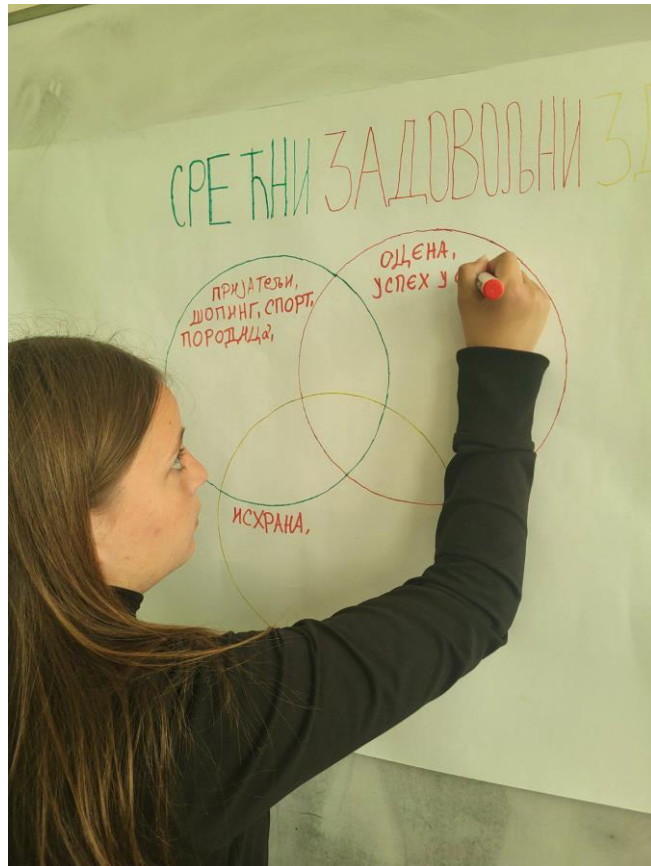 СРЕЋНИ ЗАДОВОЉНИ ЗД
ПРИЈАТЕЉИ,
ШОПИНГ, СПОРТ,
ПОРОДИЦА,
ОЦЕНА,
УСПЕХ У
ИСХРАНА,